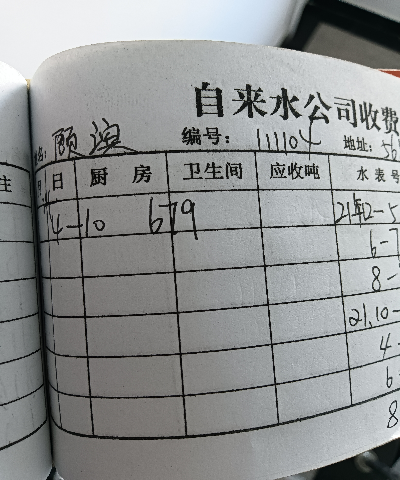 自来水公司收费
名: 顾澳 编号: 111104 地址: 56
注 月 日 厨 房 卫生间 应收吨 水表号
4-10 679 21年2-5
6-7
8-
21.10-
4-
6-
8